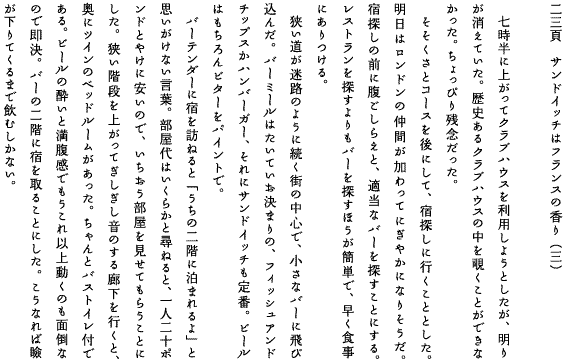 二三頁　サンドイッチはフランスの香り（三）
　七時半に上がってクラブハウスを利用しようとしたが、明り
が消えていた。歴史あるクラブハウスの中を覗くことができな
かった。ちょっぴり残念だった。
　そそくさとコースを後にして、宿探しに行くこととした。
明日はロンドンの仲間が加わってにぎやかになりそうだ。
宿探しの前に腹ごしらえと、適当なバーを探すことにする。
レストランを探すよりもバーを探すほうが簡単で、早く食事
にありつける。
　狭い道が迷路のように続く街の中心で、小さなバーに飛び
込んだ。バーミールはたいていお決まりの、フィッシュアンド
チップスかハンバーガー、それにサンドイッチも定番。ビール
はもちろんビターをパイントで。
　バーテンダーに宿を訪ねると「うちの二階に泊まれるよ」と
思いがけない言葉。部屋代はいくらかと尋ねると、一人二十ポ
ンドとやけに安いので、いちおう部屋を見せてもらうことに
した。狭い階段を上がってぎしぎし音のする廊下を行くと、
奥にツインのベッドルームがあった。ちゃんとバストイレ付で
ある。ビールの酔いと満腹感でもうこれ以上動くのも面倒な
ので即決。バーの二階に宿を取ることにした。こうなれば瞼
が下りてくるまで飲むしかない。